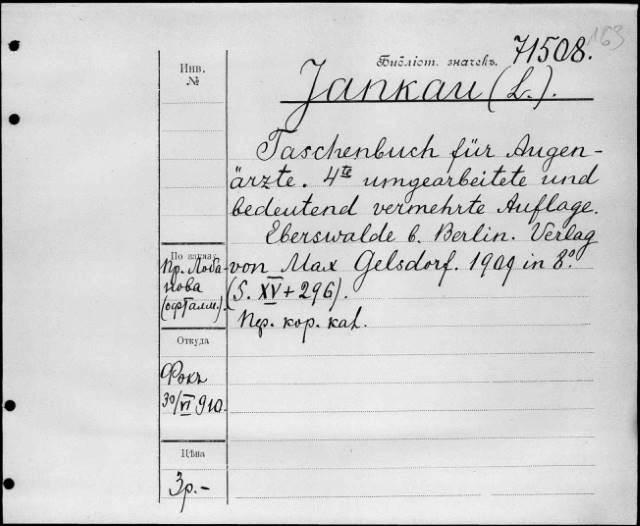 163
Библіот. значекъ. 71508.
Инв. №
Jankau (L.).
Taschenbuch für Augen-
ärzte. 4te umgearbeitete und
bedeutend vermehrte Auflage.
Eberswalde b. Berlin. Verlag
von Max Gelsdorf. 1909 in 8°.
(S. XV + 296).
Пер. кор. каl.
По
Пр. Лоба-
нова
(офталм.)
Откуда
Фокъ
30/VI 910.
Цѣна
3р.-